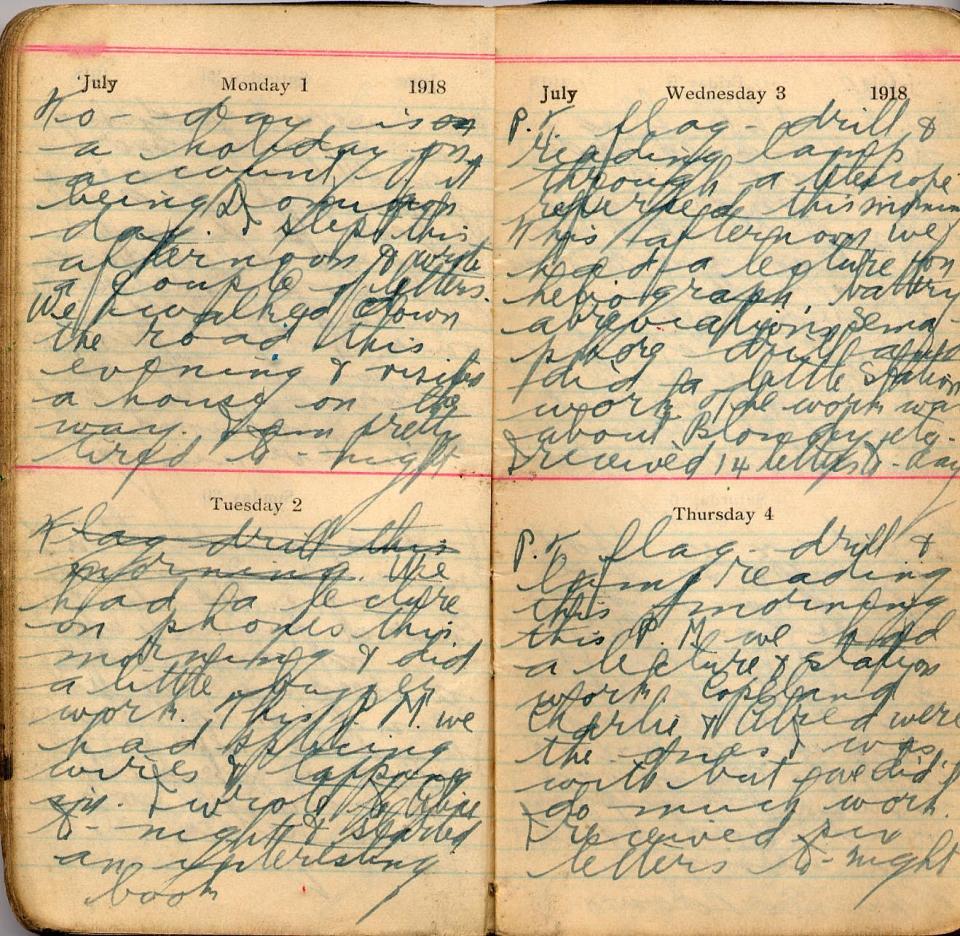 July Monday 1 1918
To-day is
a holiday on
account of it
being Dominion
day. I slept this
afternoon & wrote
a couple of letters.
We walked down
the road this
evening & visited
a house on the
way. I am pretty
tired to-night
Tuesday 2
Flag drill this
morning. We
had a lecture
on phones this
morning & did
a little buzzer
work. This P.M. we
had splicing
wires & tapping
in. I wrote to
to-night & started
an interesting
book
July Wednesday 3 1918
P.T. flag-drill &
reading lamp
through a telescope
this mornin
This afternoon we
had a lecture on
heliograph, battery
abreviations, Sema-
phore drill and
did a little Station
work. The work wa
about etc.
I received 14 letters to-day
Thursday 4
P.T. flag-drill &
lamp reading
this morning
this P.M. we had
a lecture & station
work. Copeland
Charlie & Alfred were
the ones I was
with but we did't
do much work.
I received six
letters to-night